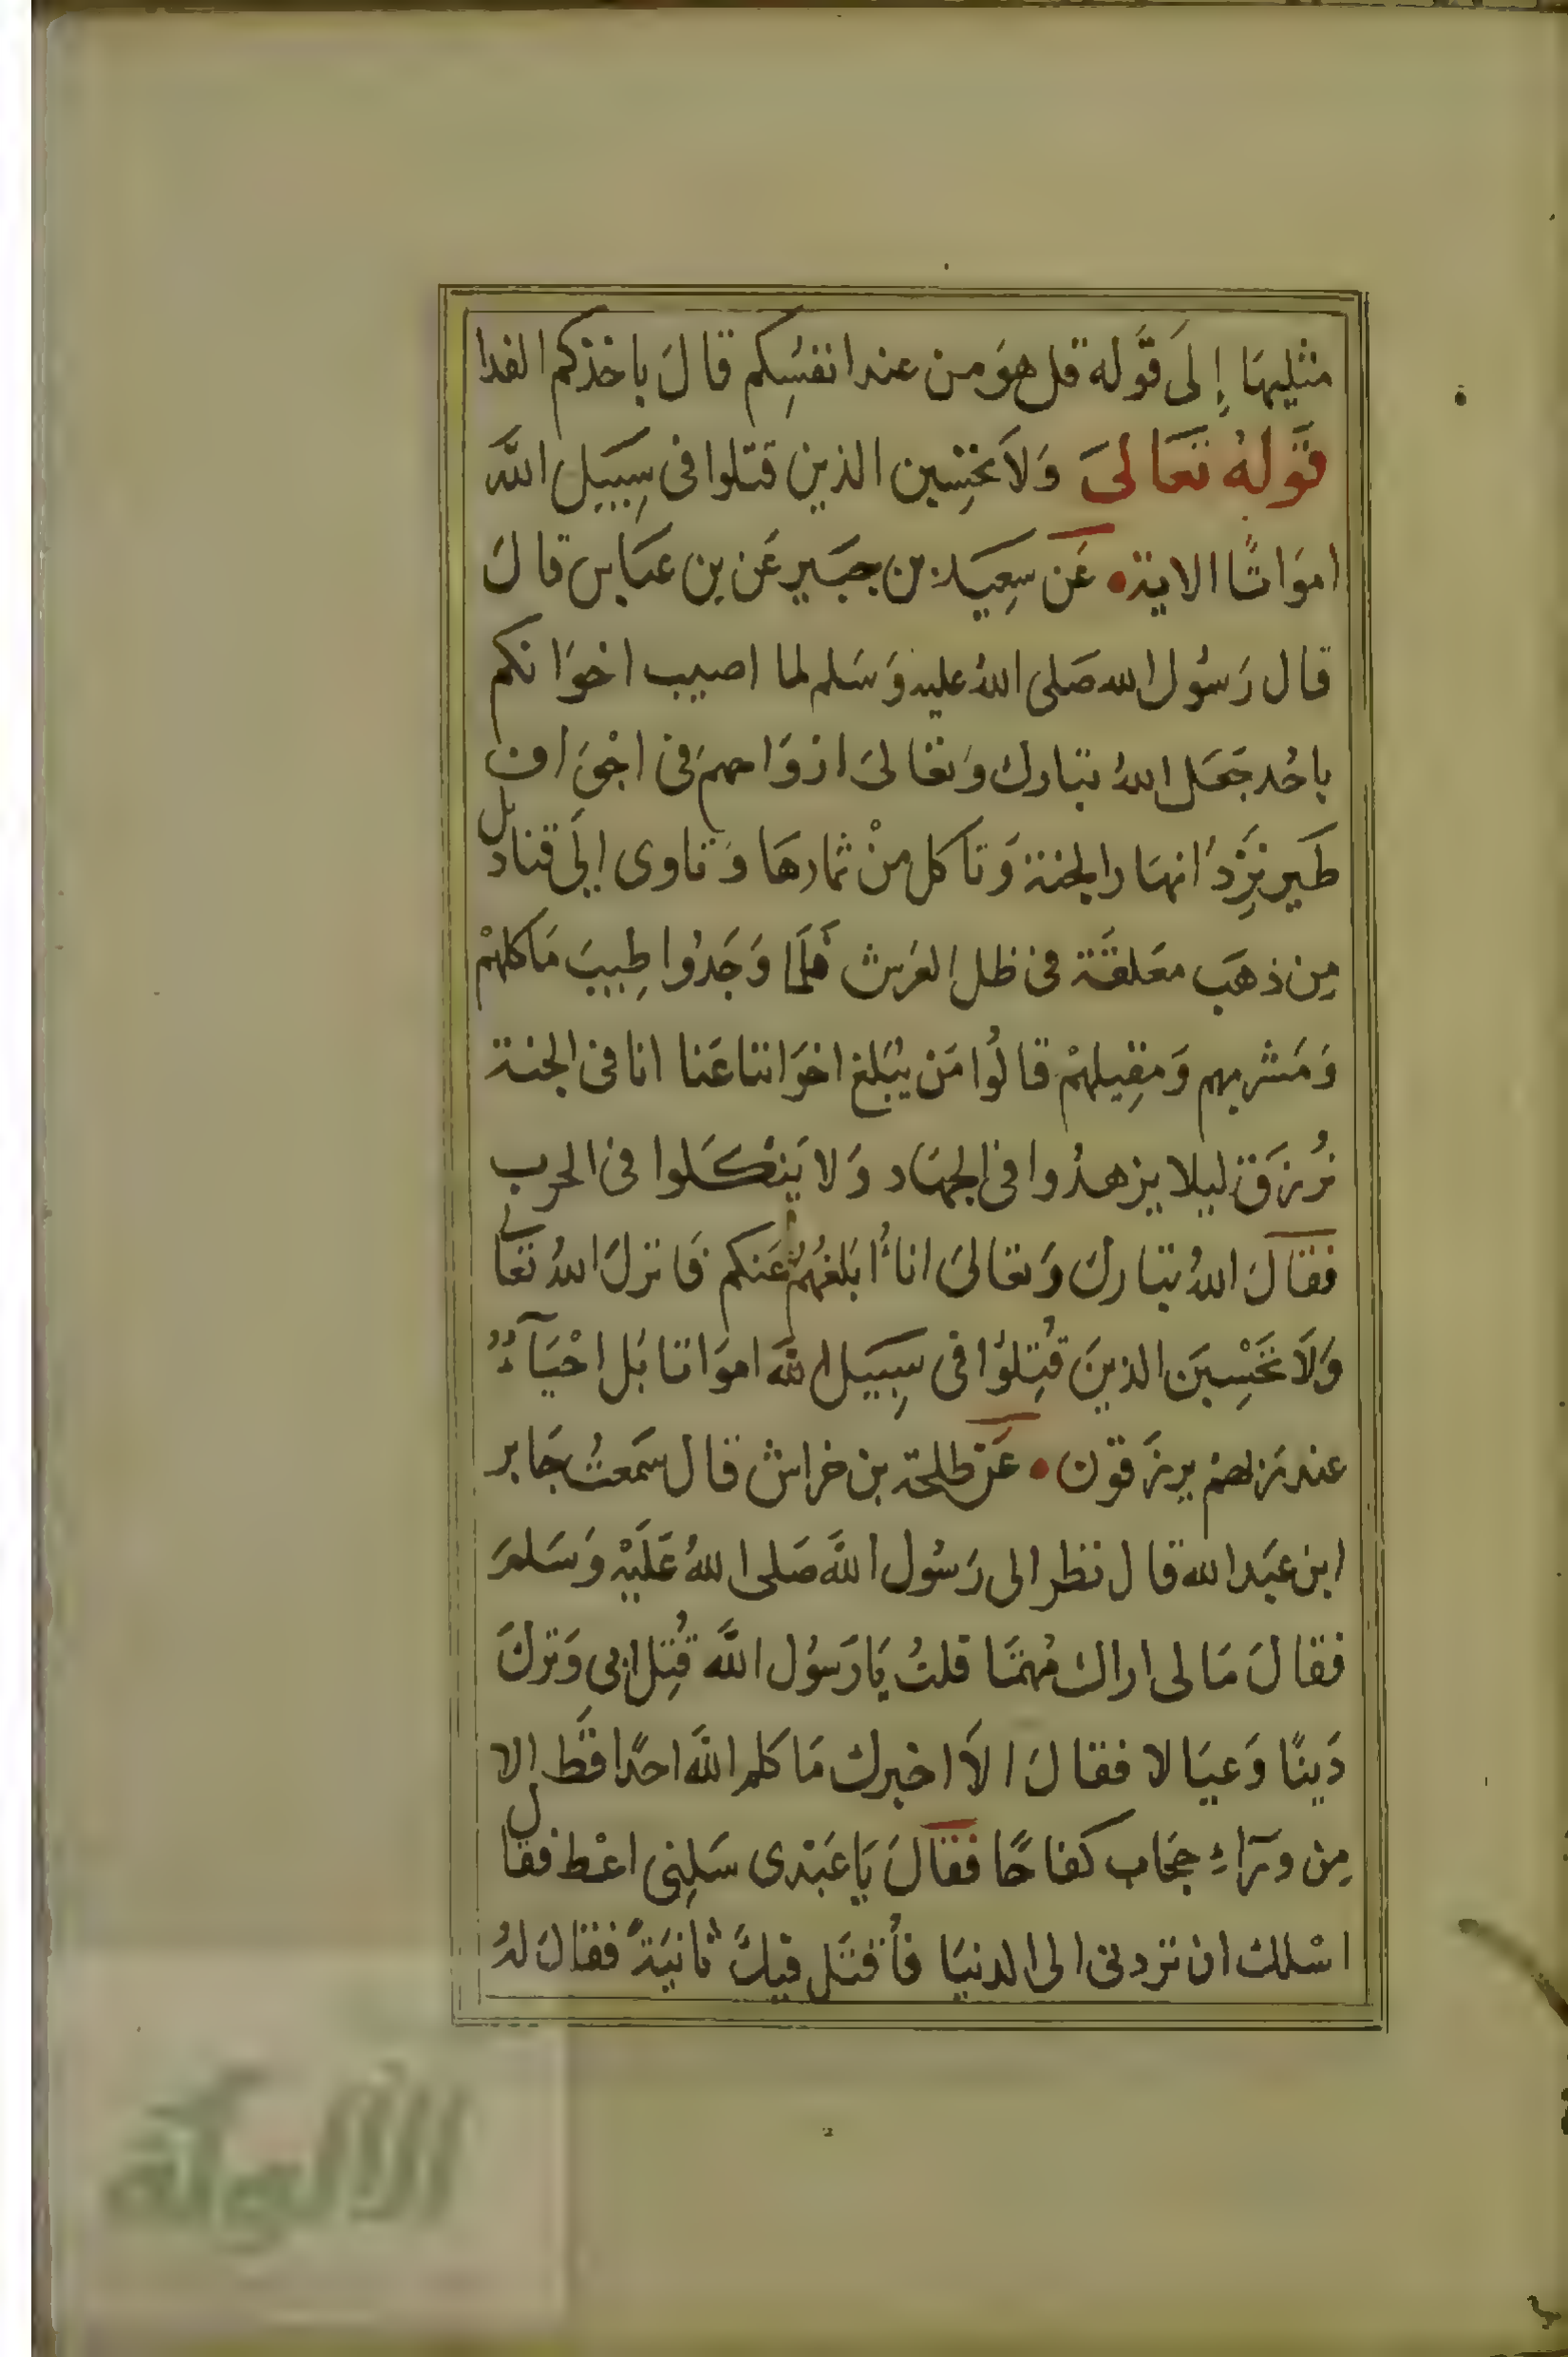 مثليها إِلَى قَوله قل هوَ من عند انفسِكم قالَ باخذكم الفدا
قَولهُ تعَالىَ وَلاَ تحسِبن الذين قتلوا فى سِبَيل اللَّه
اموَاتًا الاية عَن سعِيَد بن جبَير عَن بن عبَاس قالَ
قال رَسُول الله صَلى اللهُ عليه وَسَلم لما اصيب اخوَانكم
باحُد جعَل اللهُ تبارك وَتعَالىَ ارْوَاحهمَ فى اجْوَاف
طَير تَرِدُ انهَار الجنة وَتأكل منْ ثمارهَا وَتاوى إلَى قناديل
مِن ذهَب معَلقَة فى ظل العَرش فَلَمَا وَجَدُوا طِيبَ مَاكلهمْ
وَمَشربهم وَمَقِيلهمْ قالُوا مَن يُبَلغ اخوَاننا عَنا انا فى الجنة
نُرزَق ليلا يزهدُوا فى الجهَاد وَلا يَنكَلوا فى الحرب
فقَالَ اللهُ تبَارك وَتعَالىَ اناأُ ابَلغهُمُ عَنكم فَانزلَ اللهُ تعَالى
وَلاَ تَحْسِبَن الذينَ قُتِلوُا فى سِبَيل اللهَ اموَاتا بَل احْيَآءٌ
عند رَبهمْ يرزَقون عَن طلحة بن خراش قال سَمعتُ جَابر
ابن عبَد الله قال نظر الى رَسُول اللَّه صَلى اللهُ عَلَيْه وَسَلمَ
فقالَ مَا لى اراك مُهتمَا قلتُ يَا رَسُول اللَّه قُتِل ابى وَتركَ
دَينًا وَعيَالا فقالَ الاَ اخبرك مَا كلم اللَّه احدًا قَط الا
مِن وَرَآءِ حجَاب كفاحًا فقَالَ يَا عَبَدى سَلِنى اعْط فقال
اسْلك ان تردنى الى الدنيَا فأُقتَل فيك ثانيَة فقالَ لهُ
الألوكة